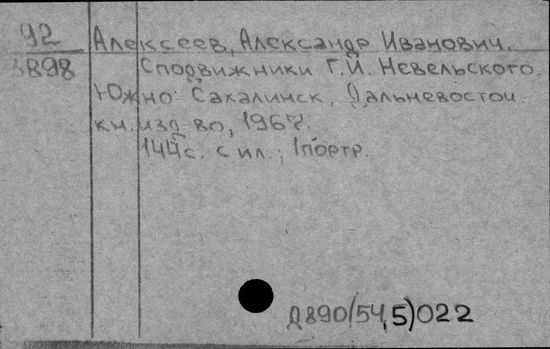 92
Алексеев, Александр Иванович.
898
Сподвижники Г.И. Невельского.
Южно-Сахалинск, Дальневосточ.
кн. изд-во, 1967.
144с. с ил.; 1портр.
Д890(54,5)022